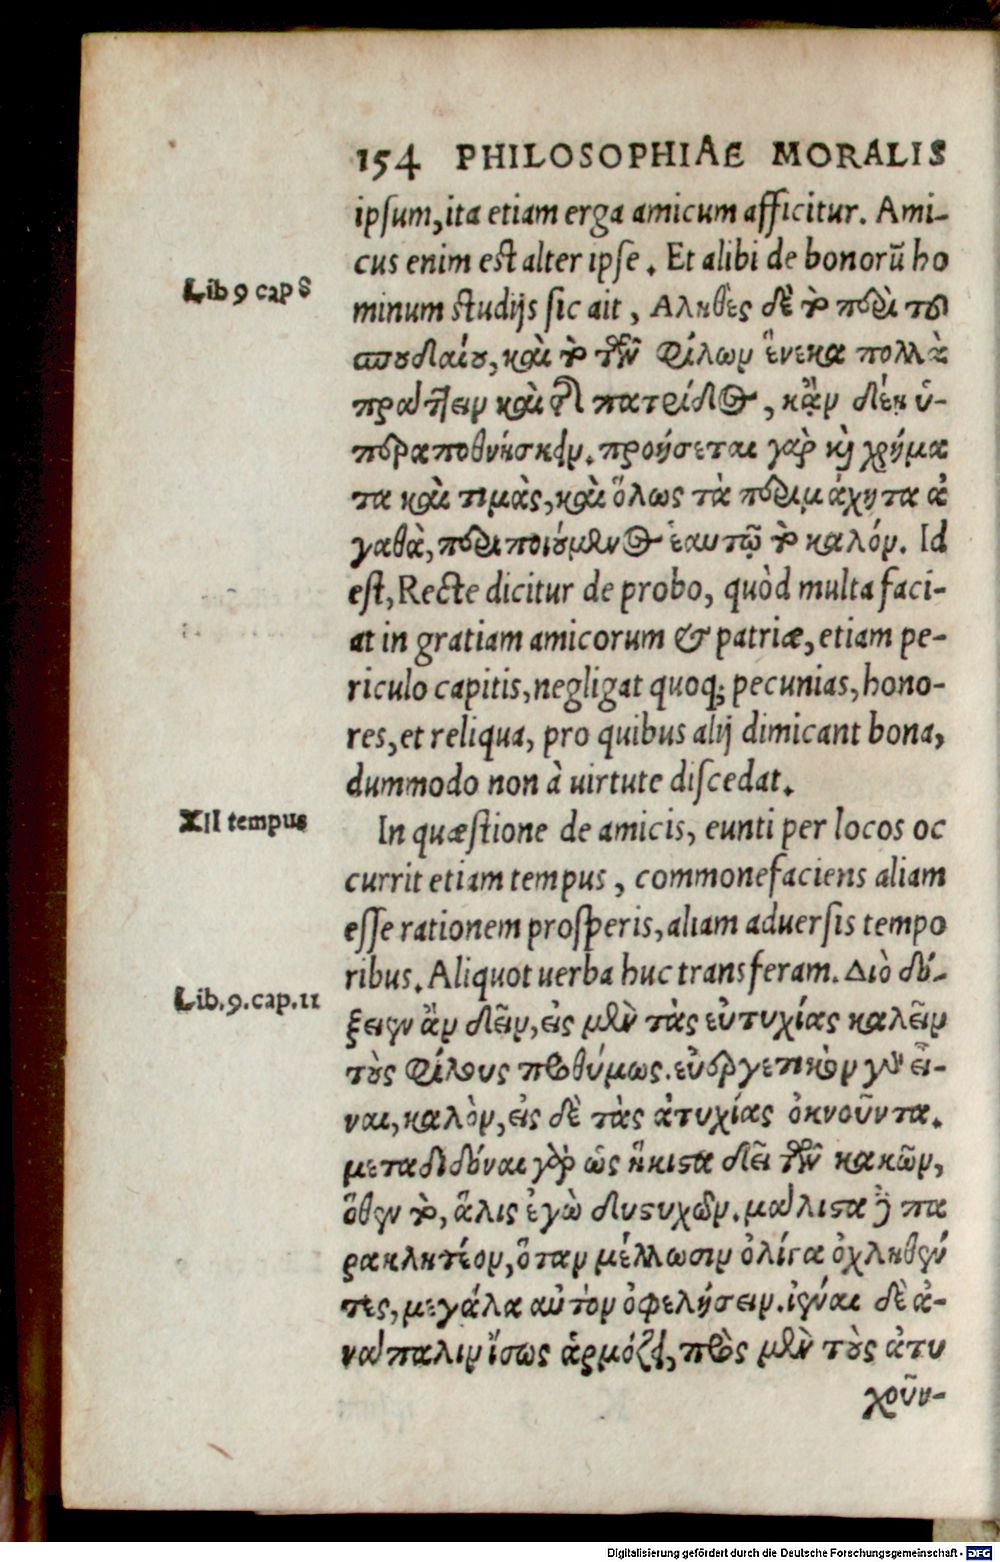 154 PHILOSOPHIAE MORALIS
ipsum, ita etiam erga amicum afficitur. Ami-
cus enim est alter ipse. Et alibi de bonorū ho
Lib 9 cap 8
minum studijs sic ait, Αληθὲς δὲ τὸ περὶ του
σπουδαίου, καὶ τὸ τῶν φίλων ἕνεκα πολλὰ
πράττειν καὶ τῆς πατρίδος, κἂν δέη ὑ-
περαποθνήσκειν. προήσεται γὰρ καὶ χρήμα
τα καὶ τιμὰς, καὶ ὅλως τὰ περιμάχητα ἀ
γαθὰ, περιποιούμενος ἑαυτῷ τὸ καλόν. Id
est, Recte dicitur de probo, quòd multa faci-
at in gratiam amicorum & patriæ, etiam pe-
riculo capitis, negligat quoq; pecunias, hono-
res, et reliqua, pro quibus alij dimicant bona,
dummodo non à uirtute discedat.
XII tempus
In quæstione de amicis, eunti per locos oc
currit etiam tempus, commonefaciens aliam
esse rationem prosperis, aliam aduersis tempo
ribus. Aliquot uerba huc transferam. Διὸ δό-
Lib. 9. cap. 11
ξειεν ἂν δεῖν, εἰς μὲν τὰς εὐτυχίας καλεῖν
τοὺς φίλους προθύμως. εὐεργετικὸν γὰρ εἶ-
ναι, καλὸν, εἰς δὲ τὰς ἀτυχίας ὀκνοῦντα.
μεταδιδόναι γὰρ ὡς ἥκιστα δεῖ τῶν κακῶν,
ὅθεν τὸ, ἅλις ἐγὼ δυστυχῶν. μάλιστα δὲ πα
ρακλητέον, ὅταν μέλλωσιν ὀλίγα ὀχληθέν
τες, μεγάλα αὐτὸν ὀφελήσειν. ἰέναι δὲ ἀ-
νάπαλιν ἴσως ἁρμόζει, πρὸς μὲν τοὺς ἀτυ
χοῦν-
Digitalisierung gefördert durch die Deutsche Forschungsgemeinschaft - DFG